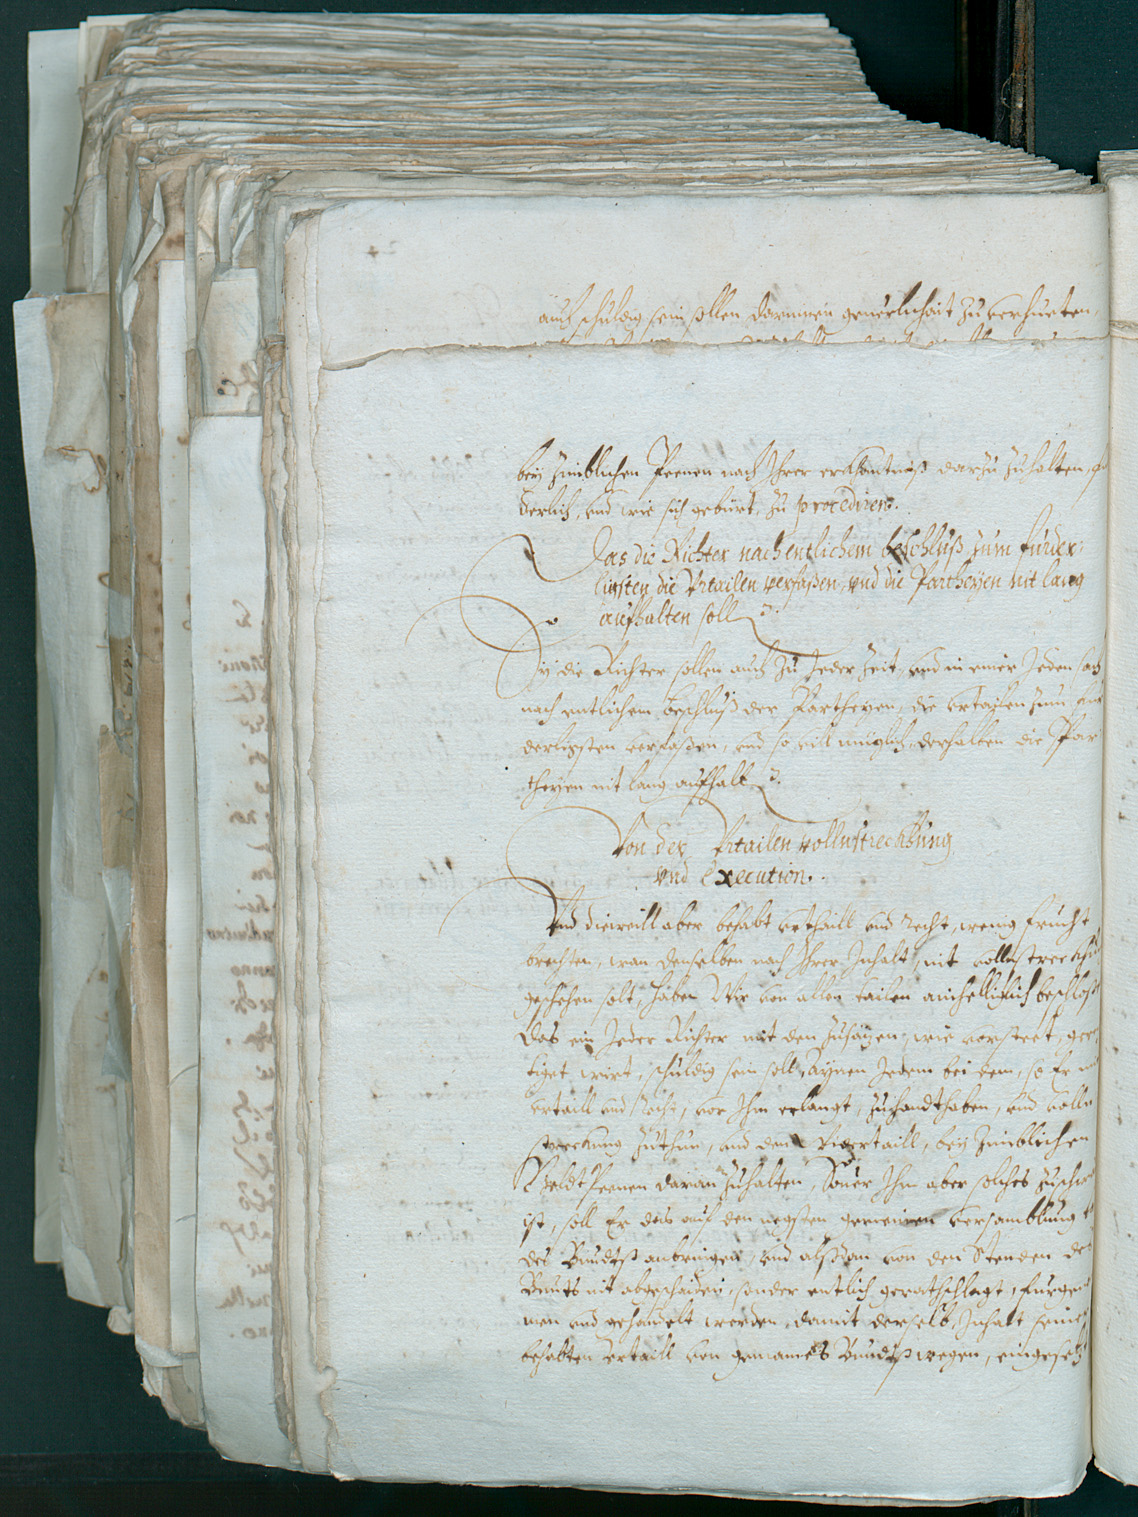 auch schuldig sein sollen darinnen geuerlichait zu verhueten,
bey zimblichen Peenen nach Ihrer erkhantnuß darzu zuhalten,
derlich, und wie sich gebürt, zu procediren.
Das die Richter nach entlichem beschluß, zum furder-
lichsten die Vrtailen verfaßen, und die Partheyen nit lang
aufhalten soll
die Richter sollen auch zu Jeder Zeit, und in einer Jeden sach
nach entlichem beschluß der Partheyen, die vrtailen zum fur
derlichsten verfaßen, und so vill müglich, derhalben die Par
theyen nit lang aufhalt
Von der Vrtailen vollnstreckhung
und Execution.
Und dieweill aber behabt vrthaill und recht, wenig frucht
brechten, wan denselben nach Ihrer Inhalt, nit vollnstreckhu
geschehen solt, haben Wir von allen tailen ainhelliglich beschloß
das ein Jeder Richter mit den Zusäzen, wie vorsteet,
tiget wirt, schuldig sein soll, aynen Jedem bei dem, so Er
vrtaill und Recht, vor Ihm erlangt, zuhandthaben, und volln
streckung zuthun, und den widertaill, bey zimblichen
Geldt Peenen daran zuhalten, Souer Ihm aber solches zuschwer
ist, soll Er das auf den negsten gemeinen versamblung
des Bundtß anbringen, und alßdan von den Stenden des
Bunts nit abgeschaiden, sonder entlich gerathschlagt, furgen
men und gehandelt werden, damit derselb, Inhalt seiner
behabten vrtaill von gemaines Bundtß wegen, eingesetzt